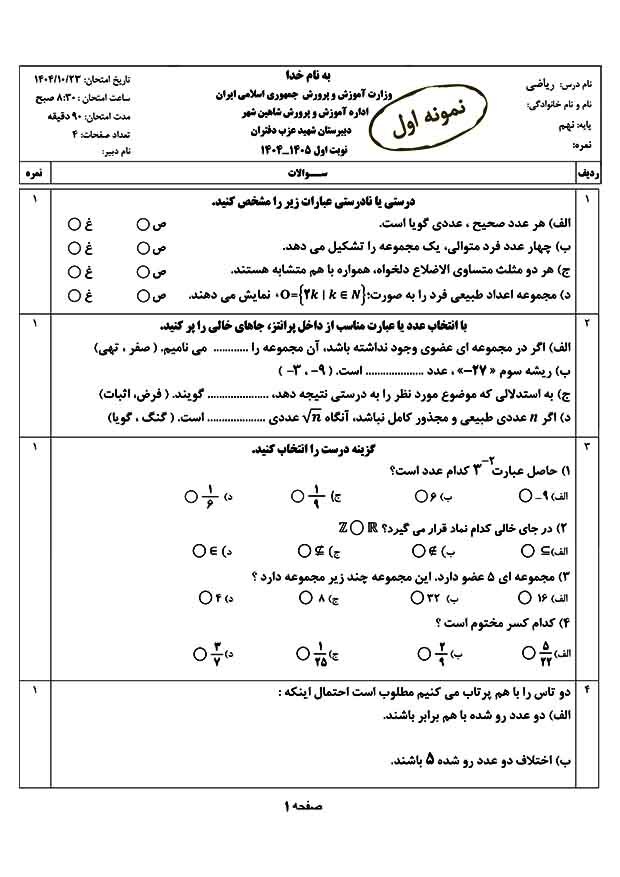 به نام خدا
وزارت آموزش و پرورش جمهوری اسلامی ایران
اداره آموزش و پرورش شاهین شهر
دبیرستان شهید عزب دفتران
نوبت اول ۱۴۰۵_۱۴۰۴
نام درس: ریاضی
نام و نام خانوادگی:
پایه: نهم
نمره:
نمونه اول
تاریخ امتحان: ۱۴۰۴/۱۰/۲۳
ساعت امتحان : ۸:۳۰ صبح
مدت امتحان: ۹۰ دقیقه
تعداد صفحات: ۴
نام دبیر:
ردیف سـوالات نمره
۱ درستی یا نادرستی عبارات زیر را مشخص کنید. ۱
الف) هر عدد صحیح ، عددی گویا است. ص غ
ب) چهار عدد فرد متوالی، یک مجموعه را تشکیل می دهد. ص غ
ج) هر دو مثلث متساوی الاضلاع دلخواه، همواره با هم متشابه هستند. ص غ
د) مجموعه اعداد طبیعی فرد را به صورت؛ O={۲k | k ∈ N}، نمایش می دهند. ص غ
۲ با انتخاب عدد یا عبارت مناسب از داخل پرانتز، جاهای خالی را پر کنید. ۱
الف) اگر در مجموعه ای عضوی وجود نداشته باشد، آن مجموعه را ............ می نامیم. ( صفر ، تهی)
ب) ریشه سوم « ۲۷−»، عدد .................... است. ( ۹- ، ۳- )
ج) به استدلالی که موضوع مورد نظر را به درستی نتیجه دهد، .................... گویند. ( فرض، اثبات)
د) اگر n عددی طبیعی و مجذور کامل نباشد، آنگاه √n عددی .................... است. ( گنگ ، گویا)
۳ گزینه درست را انتخاب کنید. ۱
۱) حاصل عبارت ۳⁻² کدام عدد است؟
الف) ۹- ب) ۶ ج) ۱/۹ د) ۱/۶
۲) در جای خالی کدام نماد قرار می گیرد؟ ℤ ○ ℝ
الف) ⊆ ب) ∉ ج) ⊈ د) ∈
۳) مجموعه ای ۵ عضو دارد. این مجموعه چند زیر مجموعه دارد ؟
الف) ۱۶ ب) ۳۲ ج) ۸ د) ۴
۴) کدام کسر مختوم است ؟
الف) ۵/۲۲ ب) ۲/۹ ج) ۱/۲۵ د) ۳/۷
۴ دو تاس را با هم پرتاب می کنیم مطلوب است احتمال اینکه : ۱
الف) دو عدد رو شده با هم برابر باشند.
ب) اختلاف دو عدد رو شده ۵ باشند.
صفحه ۱